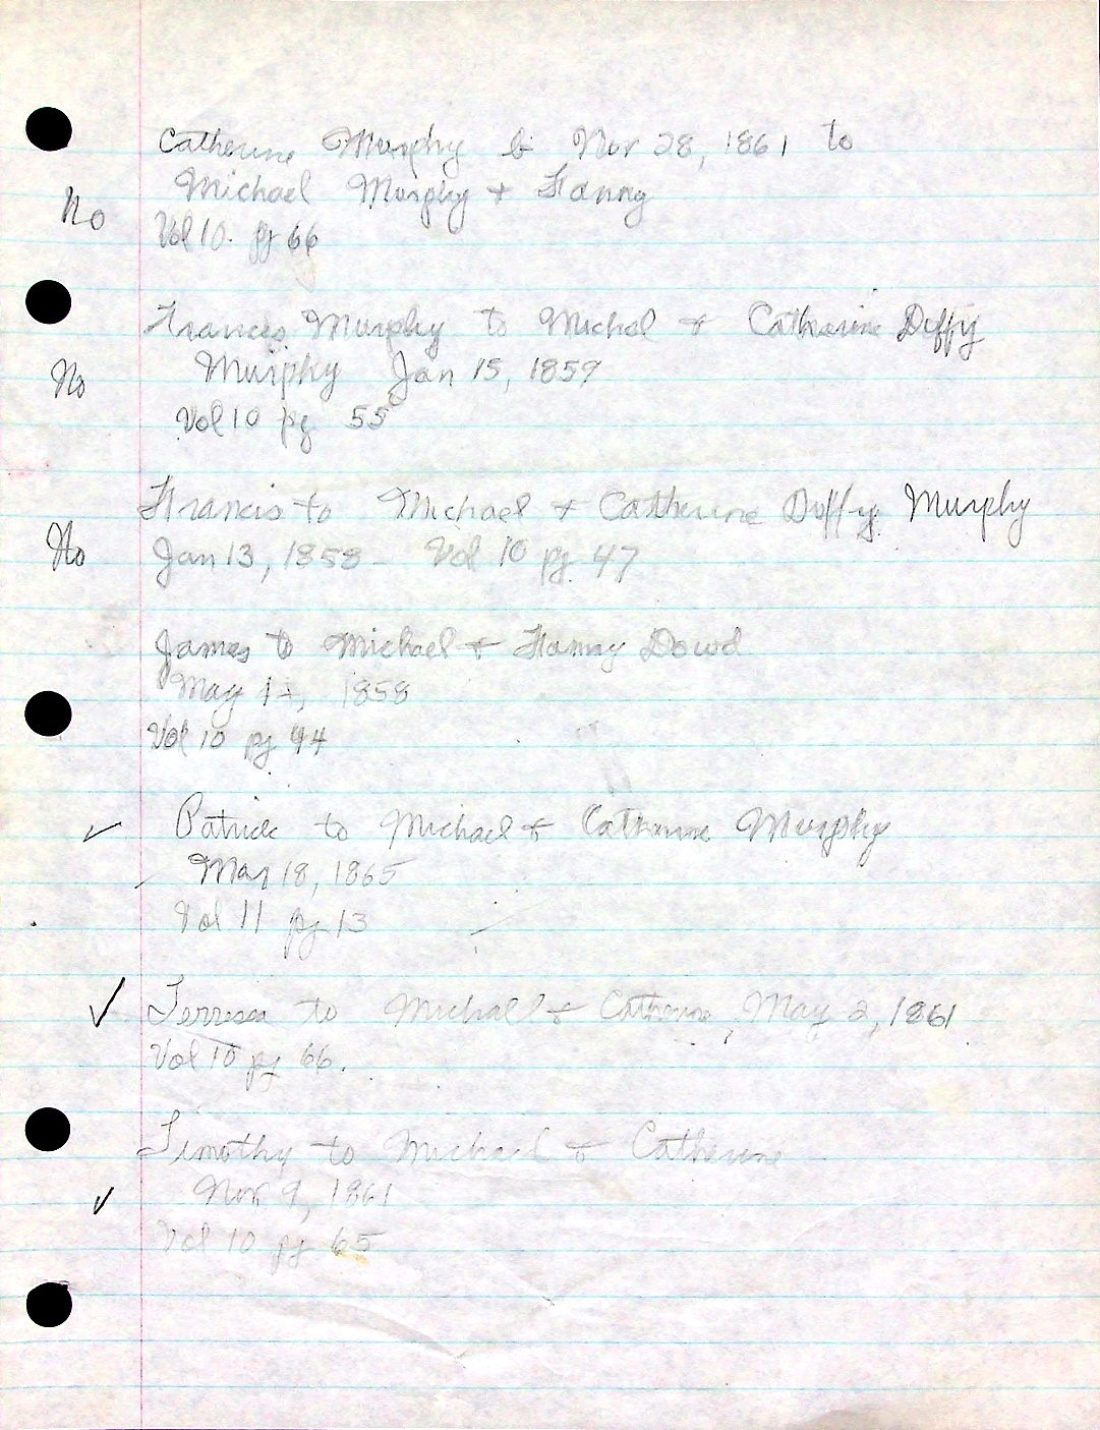 Catherine Murphy b Nov 28, 1861 to
Michael Murphy + Fanny
No
Vol 10. pg 66
Frances Murphy to Michal + Catharine Duffy
Murphy Jan 15, 1859
No
Vol 10 pg 55
Francis to Michael + Catherine Duffy Murphy
No
Jan 13, 1858 - Vol 10 pg. 47
James to Michael + Fanny Dowd
May 1, 1858
Vol 10 pg 44
✓ Patrick to Michael + Catherine Murphy
Mar 18, 1865
Vol 11 pg 13
✓ Terresa to Michall + Catherine, May 2, 1861
Vol 10 pg 66.
Timothy to Michael + Catherine
✓ Nov 9, 1861
Vol 10 pg 65